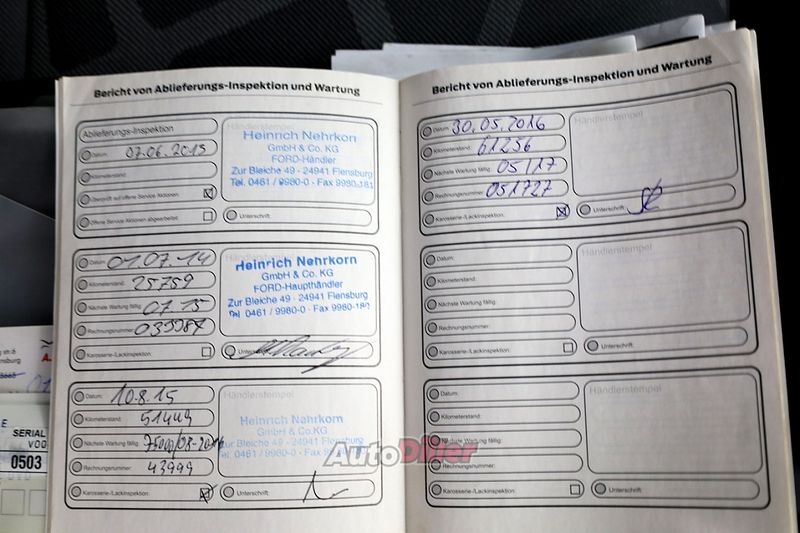 Bericht von Ablieferungs-Inspektion und Wartung
Ablieferungs-Inspektion
Datum: 07.06.2013
Kilometerstand:
Überprüft auf offene Service Aktionen:
Offene Service Aktionen abgearbeitet:
Händlerstempel
Heinrich Nehrkorn
GmbH & Co. KG
FORD-Händler
Zur Bleiche 49 - 24941 Flensburg
Tel. 0461 / 9980-0 - Fax 9980-181
Unterschrift:
Datum: 01.07.14
Kilometerstand: 25759
Nächste Wartung fällig: 07.15
Rechnungsnummer:
Karosserie-/Lackinspektion:
Heinrich Nehrkorn
GmbH & Co. KG
FORD-Haupthändler
Zur Bleiche 49 - 24941 Flensburg
Tel. 0461 / 9980-0 - Fax 9980-180
Unterschrift:
Datum: 10.8.15
Kilometerstand: 51449
Nächste Wartung fällig:
Rechnungsnummer: 43999
Karosserie-/Lackinspektion:
Händlerstempel
Heinrich Nehrkorn
GmbH & Co. KG
Zur Bleiche 49 - 24941 Flensburg
Unterschrift:
Bericht von Ablieferungs-Inspektion und Wartung
Datum: 30.05.2016
Kilometerstand: 61256
Nächste Wartung fällig: 05/17
Rechnungsnummer: 051727
Karosserie-/Lackinspektion:
Händlerstempel
Unterschrift:
Datum:
Kilometerstand:
Nächste Wartung fällig:
Rechnungsnummer:
Karosserie-/Lackinspektion:
Händlerstempel
Unterschrift:
Datum:
Kilometerstand:
Nächste Wartung fällig:
Rechnungsnummer:
Karosserie-/Lackinspektion:
Händlerstempel
Unterschrift:
SERIAL
0503
AutoDiler